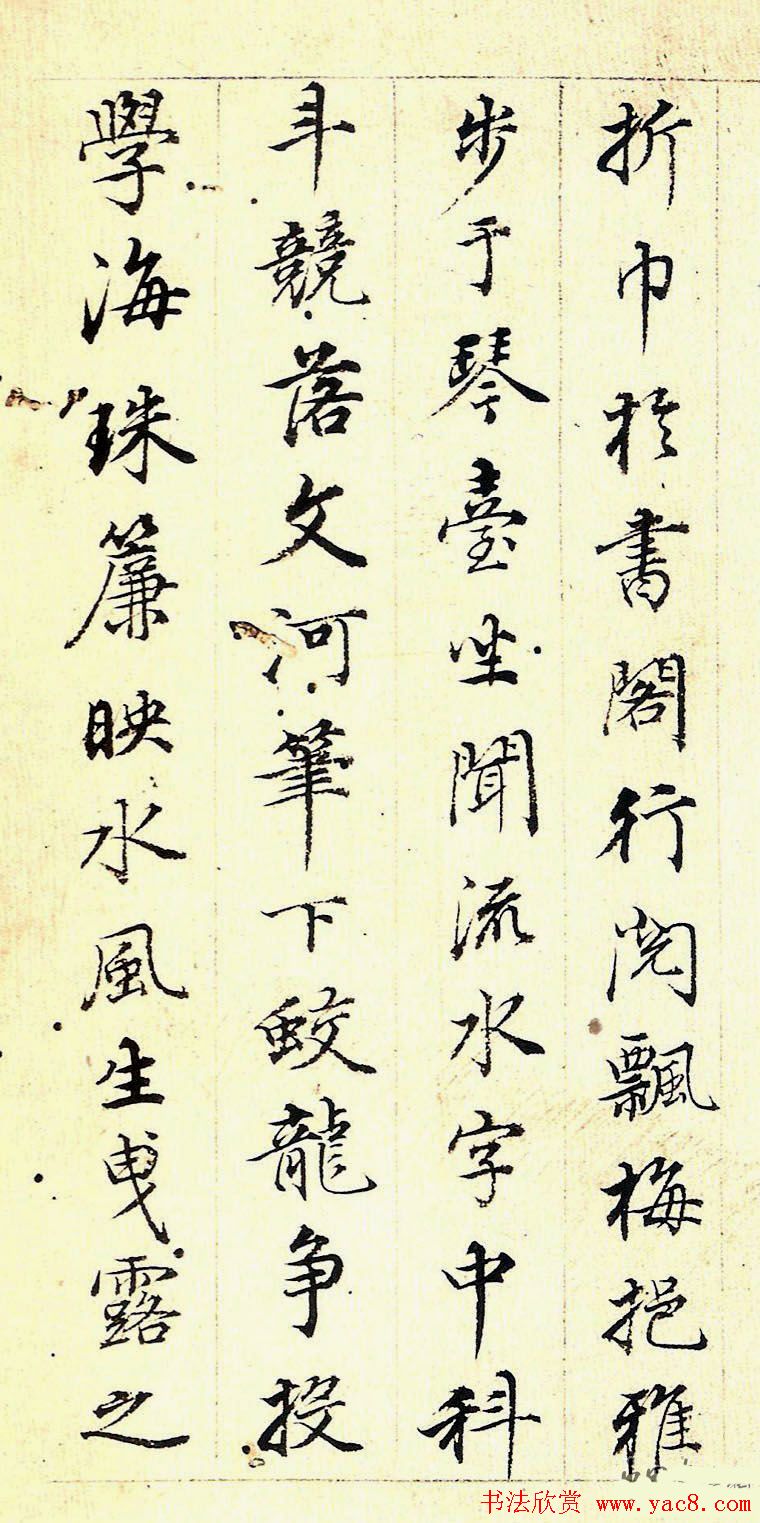 折巾於書閣行閱飄梅挹雅
步于琴臺坐聞流水字中科
斗競落文河筆下蛟龍争投
學海珠簾映水風生曳露之
书法欣赏 www.yac8.com